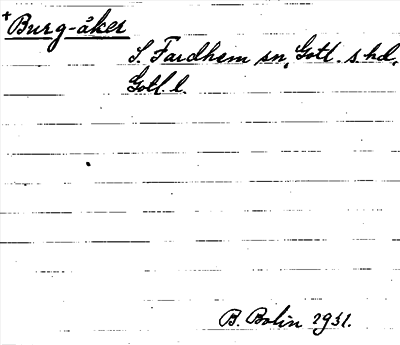 +Burg-åker
S. Fardhem sn, Gotl. s. hd,
Gotl. l.
B. Bolin 1931.